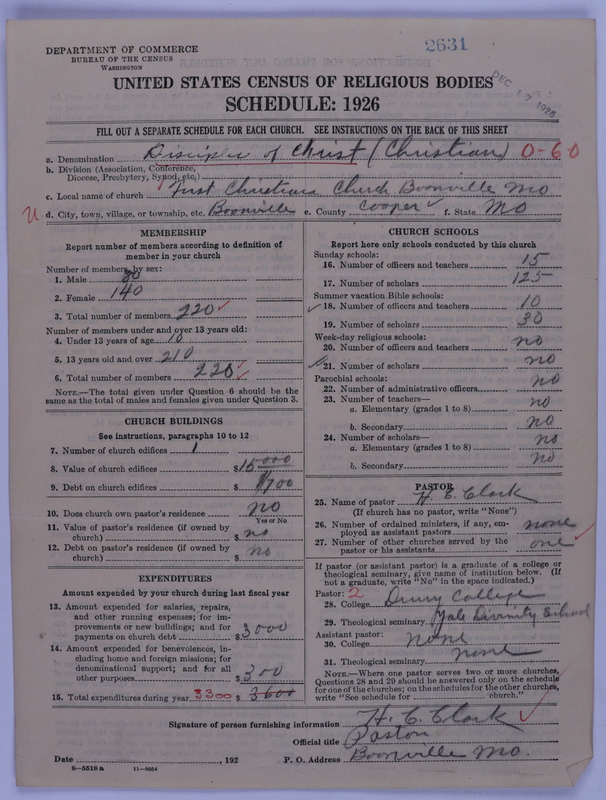 DEPARTMENT OF COMMERCE
BUREAU OF THE CENSUS
WASHINGTON
2631
DEC 17 1926
UNITED STATES CENSUS OF RELIGIOUS BODIES
SCHEDULE: 1926
FILL OUT A SEPARATE SCHEDULE FOR EACH CHURCH. SEE INSTRUCTIONS ON THE BACK OF THIS SHEET
a. Denomination Disciples of Christ (Christian) 0-60
b. Division (Association, Conference, Diocese, Presbytery, Synod, etc.)
c. Local name of church First Christian Church Boonville Mo
U. d. City, town, village, or township, etc. Boonville e. County Cooper ✓ f. State Mo
MEMBERSHIP
Report number of members according to definition of member in your church
Number of members by sex:
1. Male 80
2. Female 140
3. Total number of members 220 ✓
Number of members under and over 13 years old:
4. Under 13 years of age 10
5. 13 years old and over 210
6. Total number of members 220 ✓
NOTE.—The total given under Question 6 should be the same as the total of males and females given under Question 3.
CHURCH BUILDINGS
See instructions, paragraphs 10 to 12
7. Number of church edifices 1
8. Value of church edifices $15000
9. Debt on church edifices $ 1700
10. Does church own pastor's residence no
Yes or No
11. Value of pastor's residence (if owned by church) $ no
12. Debt on pastor's residence (if owned by church) $ no
EXPENDITURES
Amount expended by your church during last fiscal year
13. Amount expended for salaries, repairs, and other running expenses; for improvements or new buildings; and for payments on church debt $3000
14. Amount expended for benevolences, including home and foreign missions; for denominational support; and for all other purposes $300
15. Total expenditures during year 3300 $ 3600
CHURCH SCHOOLS
Report here only schools conducted by this church
Sunday schools:
16. Number of officers and teachers 15
17. Number of scholars 125
Summer vacation Bible schools:
✓ 18. Number of officers and teachers 10
19. Number of scholars 30
Week-day religious schools:
20. Number of officers and teachers no
21. Number of scholars no
Parochial schools:
22. Number of administrative officers no
23. Number of teachers—
a. Elementary (grades 1 to 8) no
b. Secondary no
24. Number of scholars—
a. Elementary (grades 1 to 8) no
b. Secondary no
PASTOR
25. Name of pastor H. C. Clark
(If church has no pastor, write "None")
26. Number of ordained ministers, if any, employed as assistant pastors none
27. Number of other churches served by the pastor or his assistants one ✓
If pastor (or assistant pastor) is a graduate of a college or theological seminary, give name of institution below. (If not a graduate, write "No" in the space indicated.)
Pastor: 2
28. College Drury College
29. Theological seminary Yale Divinity School
Assistant pastor:
30. College none
31. Theological seminary none
NOTE.—Where one pastor serves two or more churches, Questions 28 and 29 should be answered only on the schedule for one of the churches; on the schedules for the other churches, write "See schedule for church."
Signature of person furnishing information H. C. Clark ✓
Official title Pastor
Date , 192 P. O. Address Boonville Mo.
8-5518 a 11-9034